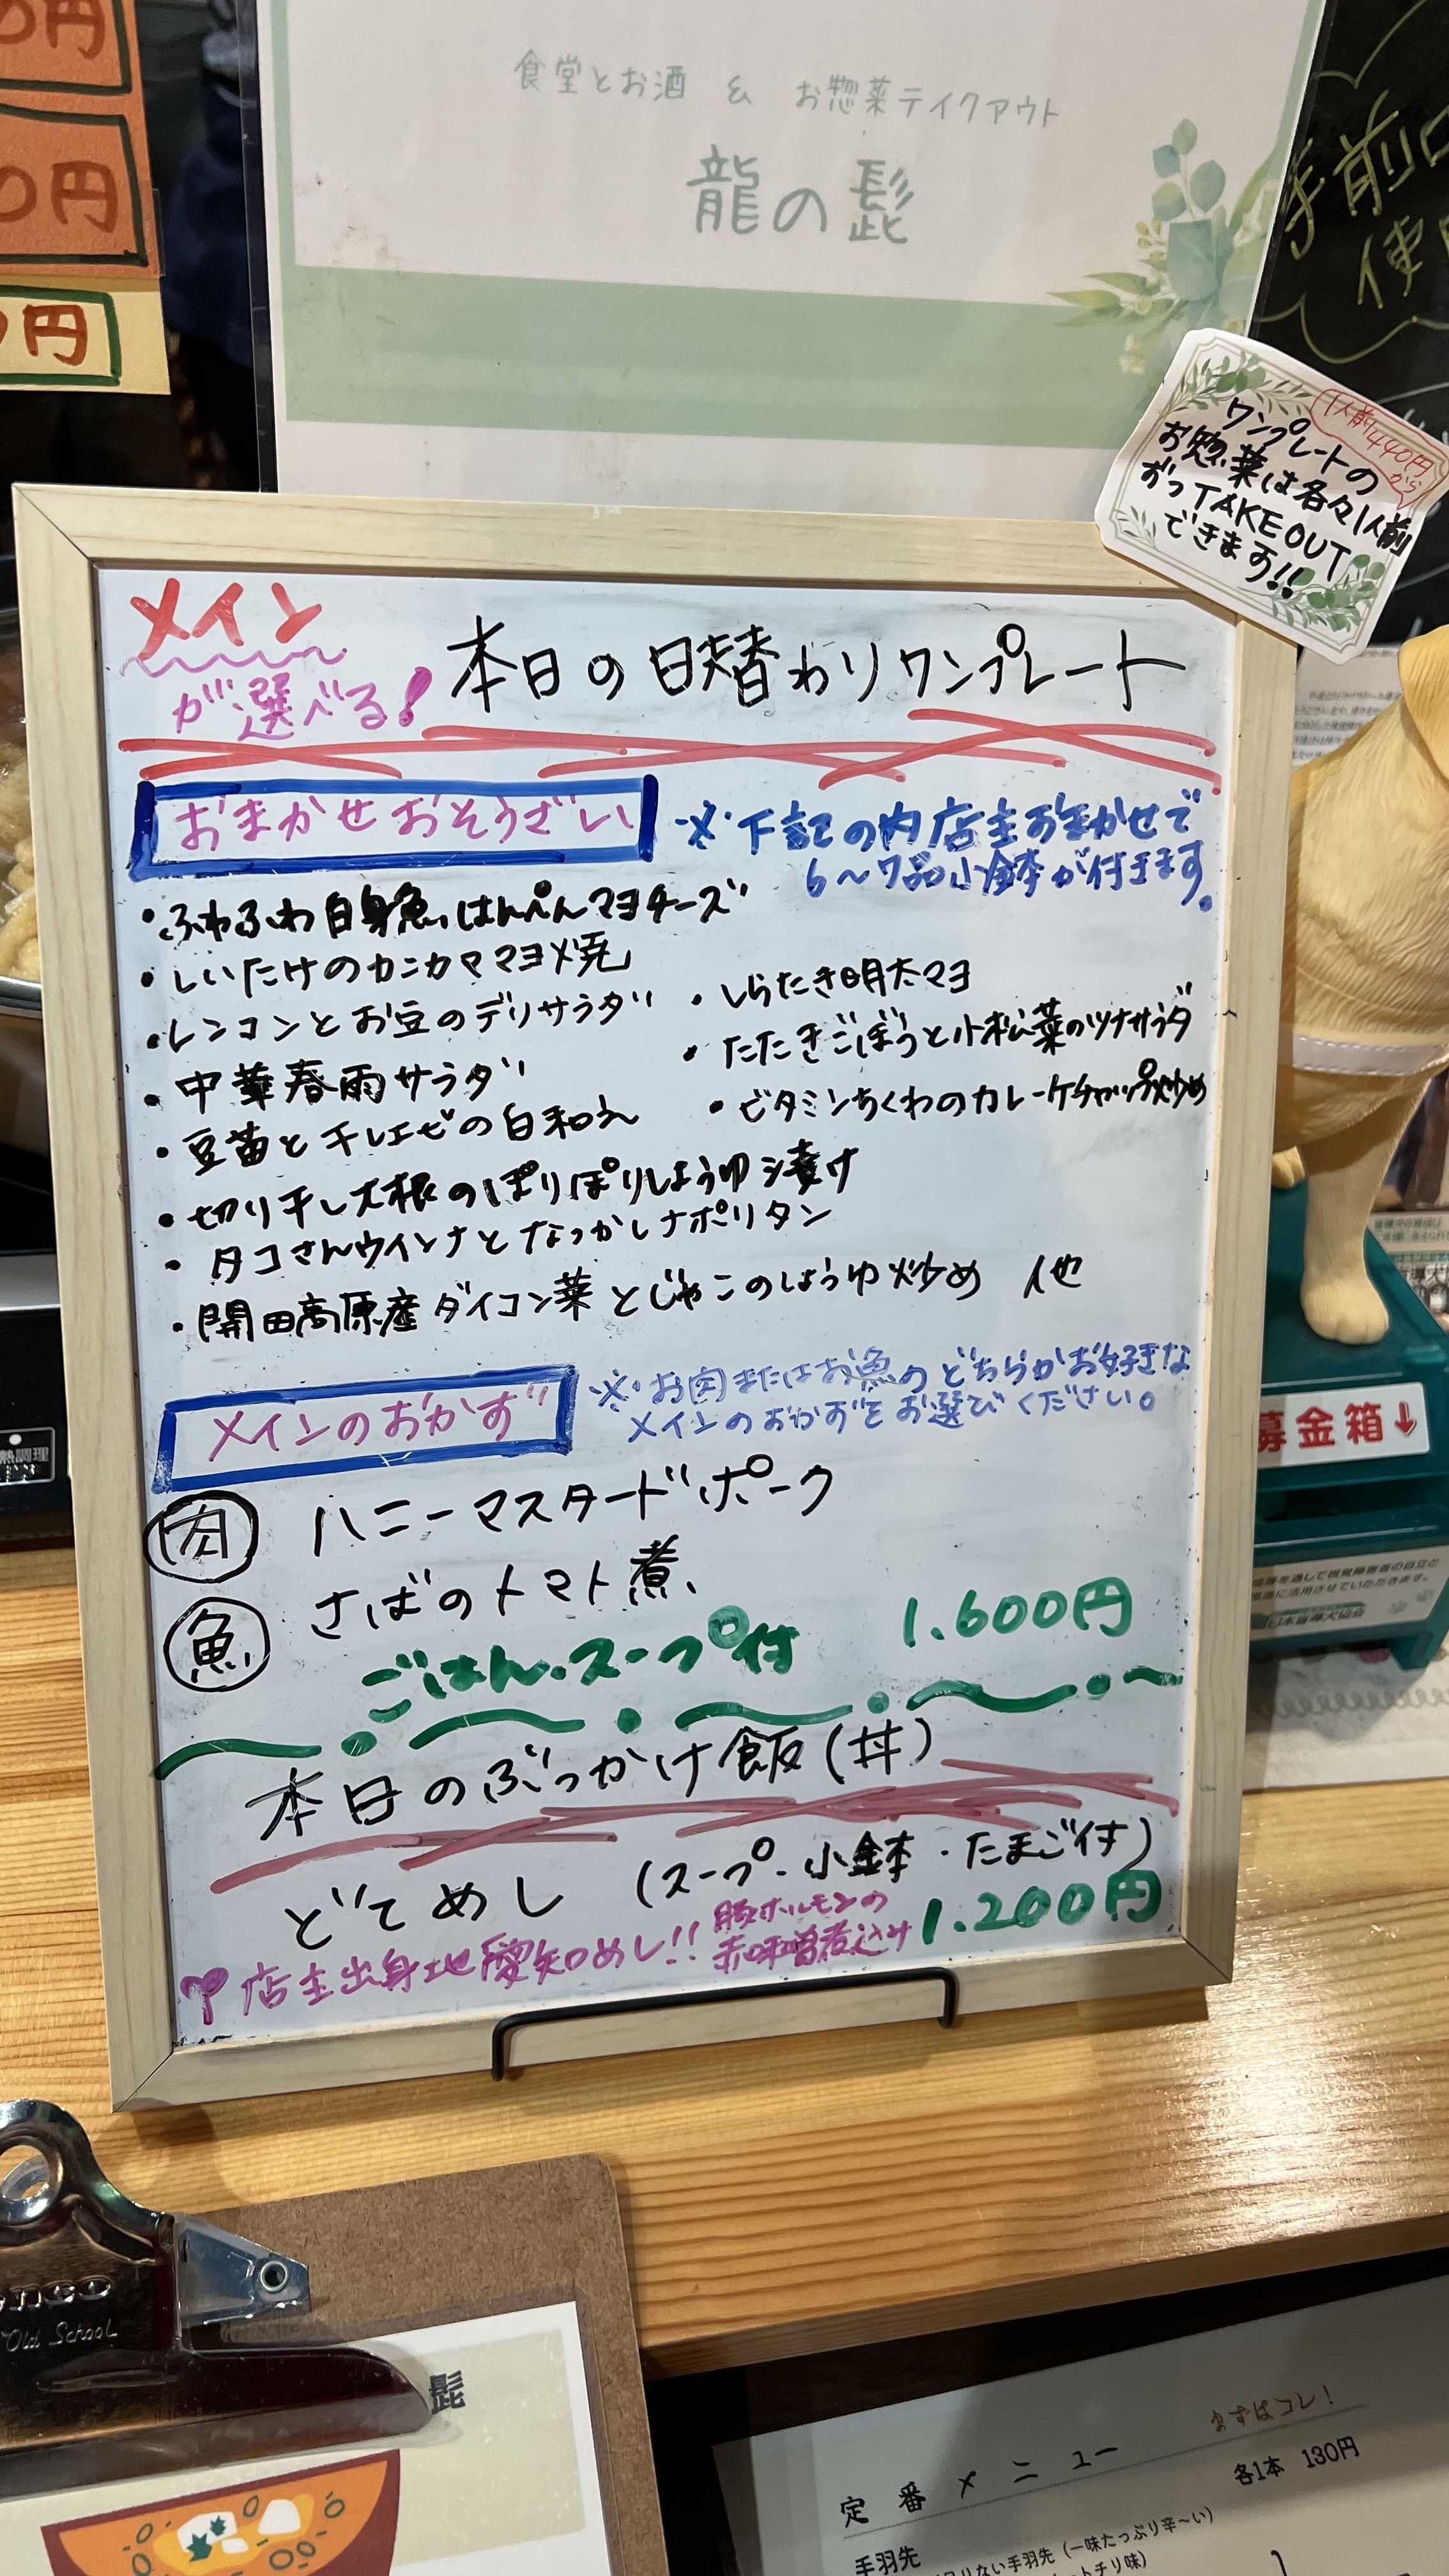 円
0円
円
食堂とお酒 & お惣菜テイクアウト
龍の髭
手前
使
1人前440円から
ワンプレートの
お惣菜は各々1人前
ずつTAKEOUT
できます!!
メイン
が選べる!
本日の日替わりワンプレート
おまかせおそうざい
※下記の内店主おまかせで
6〜7品小鉢が付きます。
・ふわふわ白身魚はんぺんマヨチーズ
・しいたけのカニカママヨ焼
・レンコンとお豆のデリサラダ
・中華春雨サラダ
・豆苗と干しエビの白和え
・しらたき明太マヨ
・たたきごぼうと小松菜のツナサラダ
・ビタミンちくわのカレーケチャップ炒め
・切り干し大根のぽりぽりしょうゆ漬け
・タコさんウインナとなつかしナポリタン
・開田高原産ダイコン葉とじゃこのしょうゆ炒め 他
メインのおかず
※お肉またはお魚のどちらかお好きな
メインのおかずをお選びください。
肉 ハニーマスタードポーク
魚 さばのトマト煮
ごはん・スープ付 1.600円
本日のぶっかけ飯(丼)
どてめし (スープ・小鉢・たまご付)
豚ホルモンの
赤味噌煮込み
1.200円
店主出身地愛知めし!!
募金箱↓
Old School
髭
定番メニュー
まずはコレ!
各1本 130円
手羽先
ない手羽先(一味たっぷり辛〜い)
トチリ味)